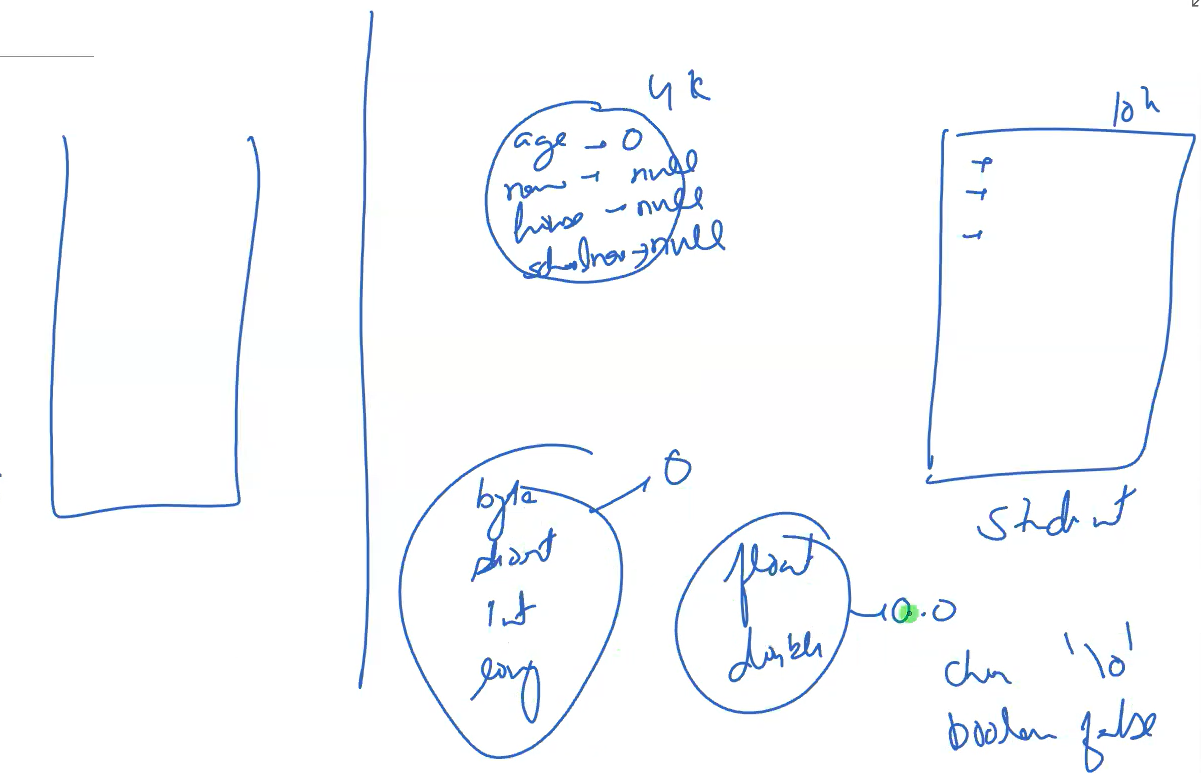 4k
age → 0
name → null
house → null
schoolname → null
10k
Student
byte
short
int
long
→ 0
float
double
→ 0.0
char '\0'
boolean false